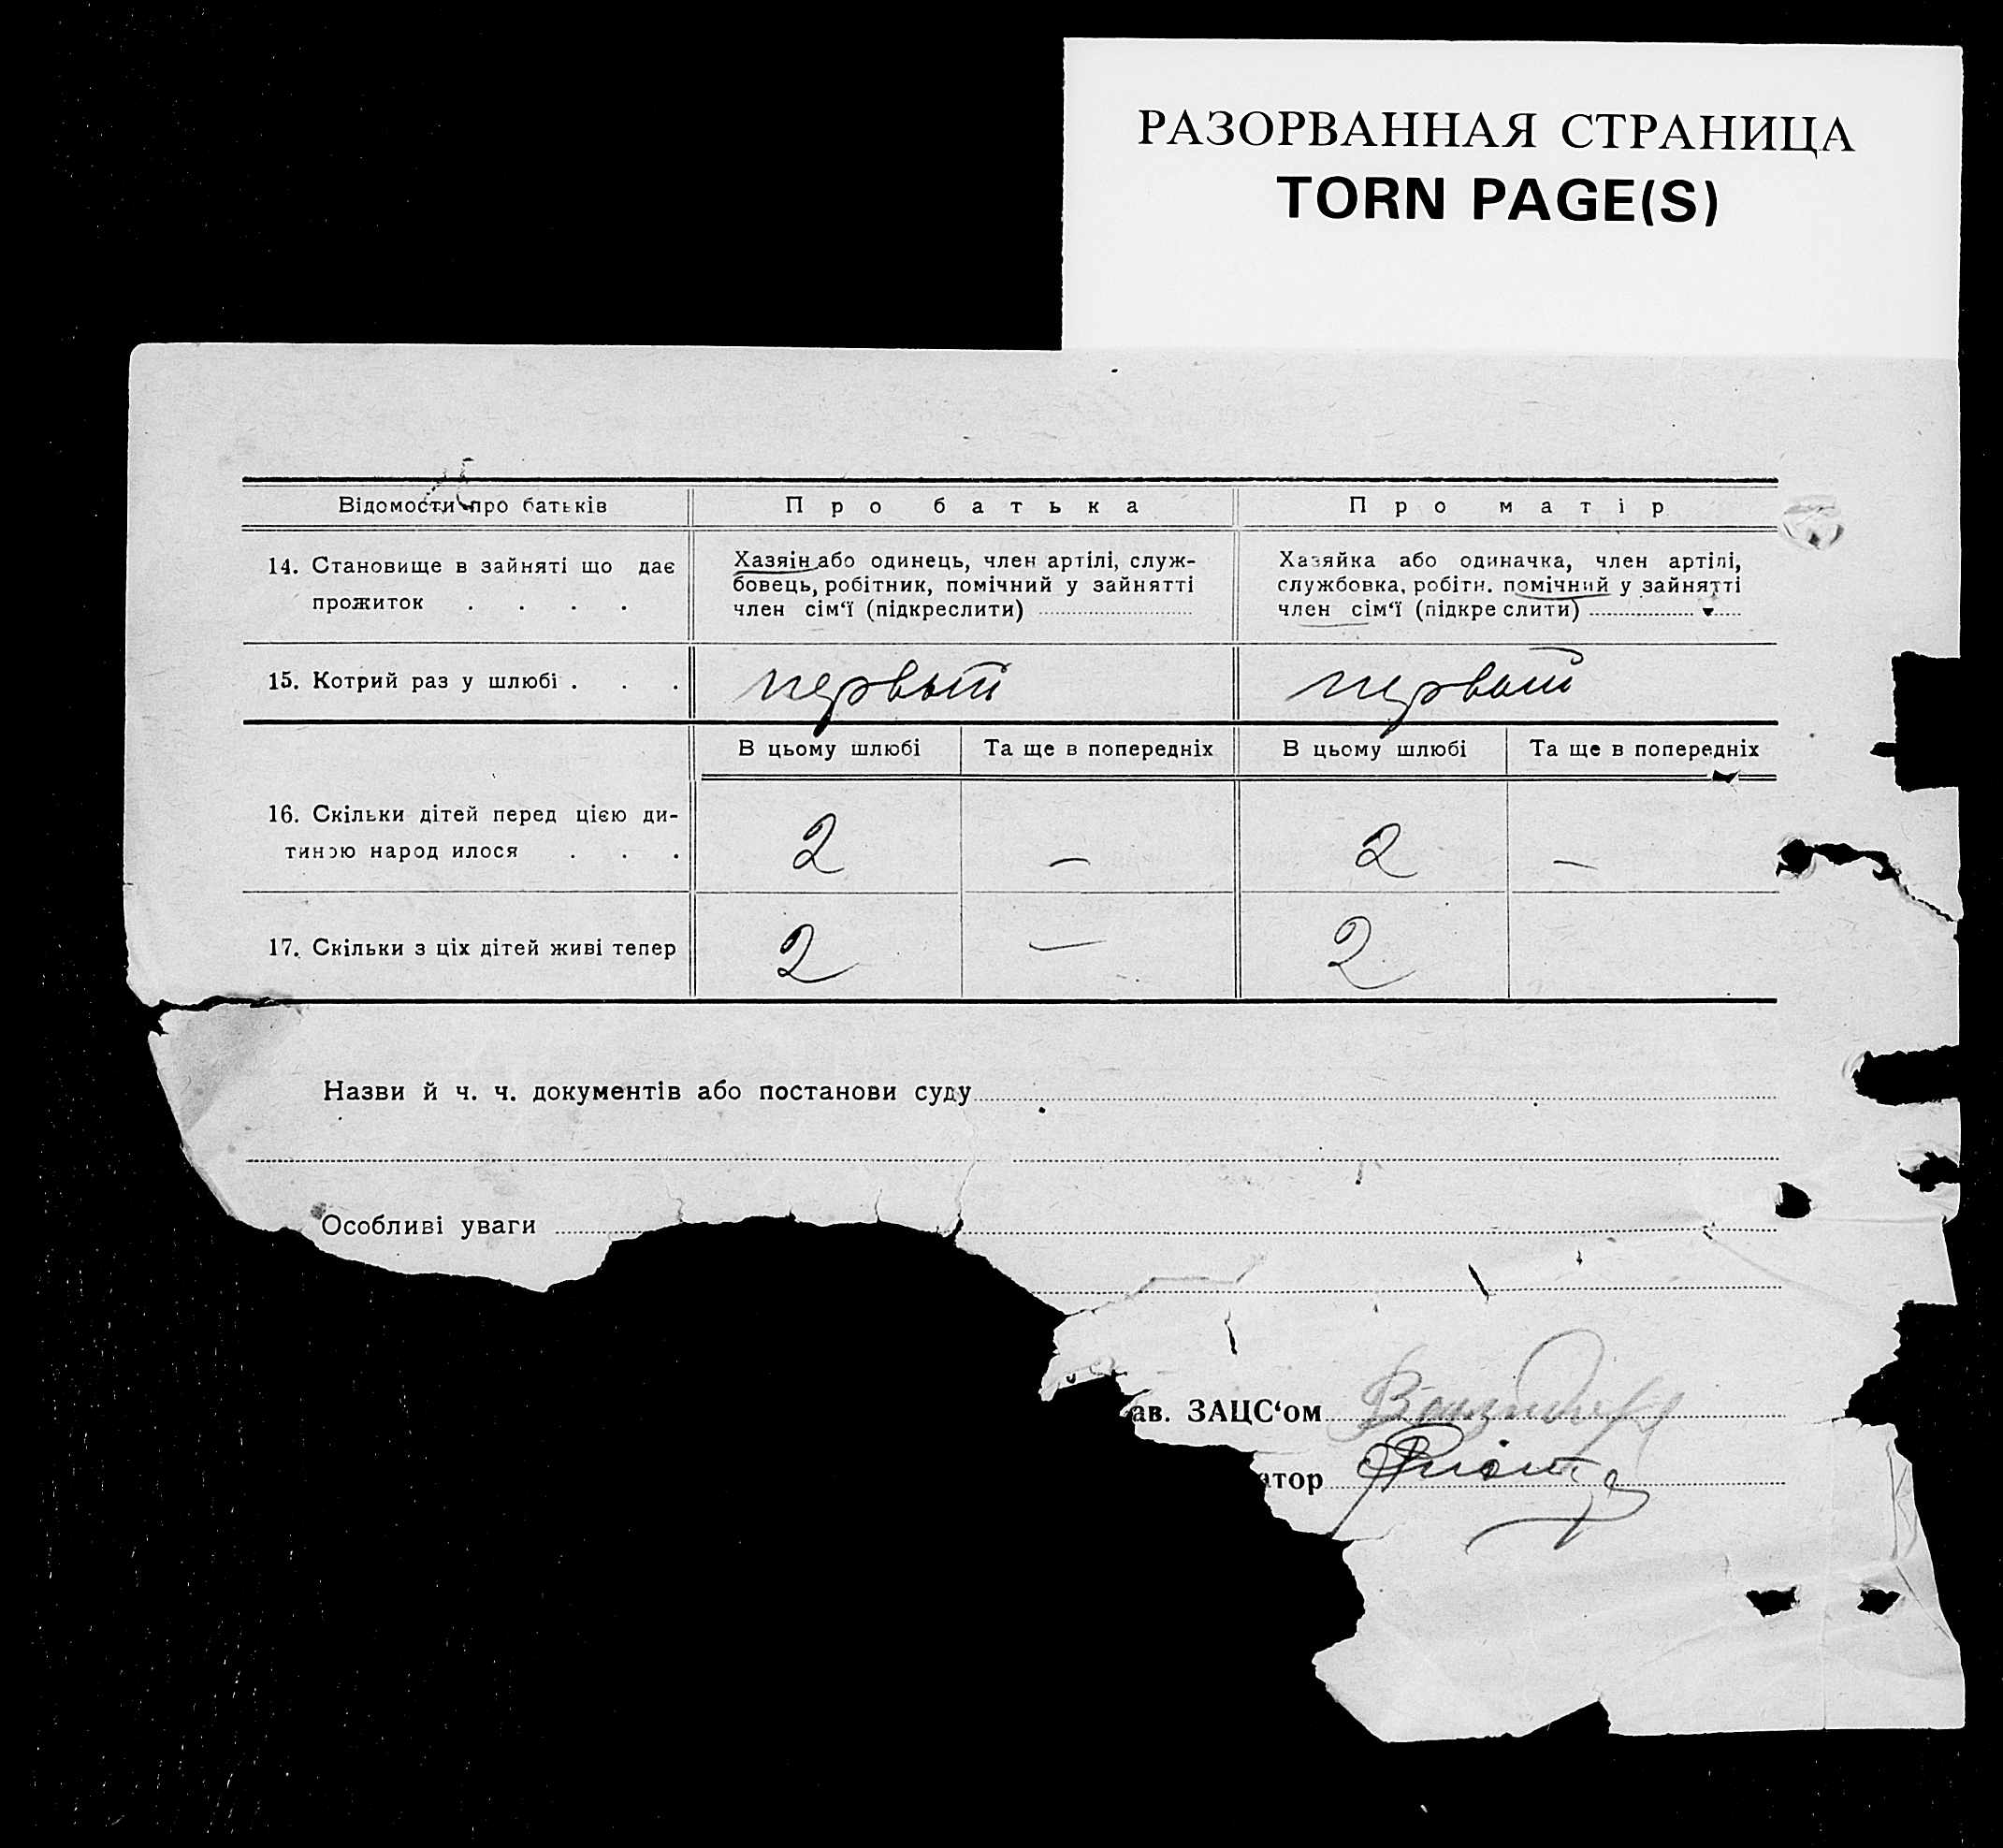 РАЗОРВАННАЯ СТРАНИЦА
TORN PAGE(S)
Відомости про батьків
Про батька
Про матір
14. Становище в зайняті що дає
прожиток . . . .
Хазяін або одинець, член артілі, служ-
бовець, робітник, помічний у зайнятті
член сім‘ї (підкреслити)
Хазяйка або одиначка, член артілі,
службовка, робітн. помічний у зайнятті
член сім‘ї (підкре слити)
15. Котрий раз у шлюбі . . .
первый
первый
В цьому шлюбі
Та ще в попередніх
В цьому шлюбі
Та ще в попередніх
16. Скільки дітей перед цією ди-
тиною народ илося . . .
2
—
2
—
17. Скільки з ціх дітей живі тепер
2
—
2
Назви й ч. ч. документів або постанови суду
Особливі уваги
ав. ЗАЦС‘ом
атор